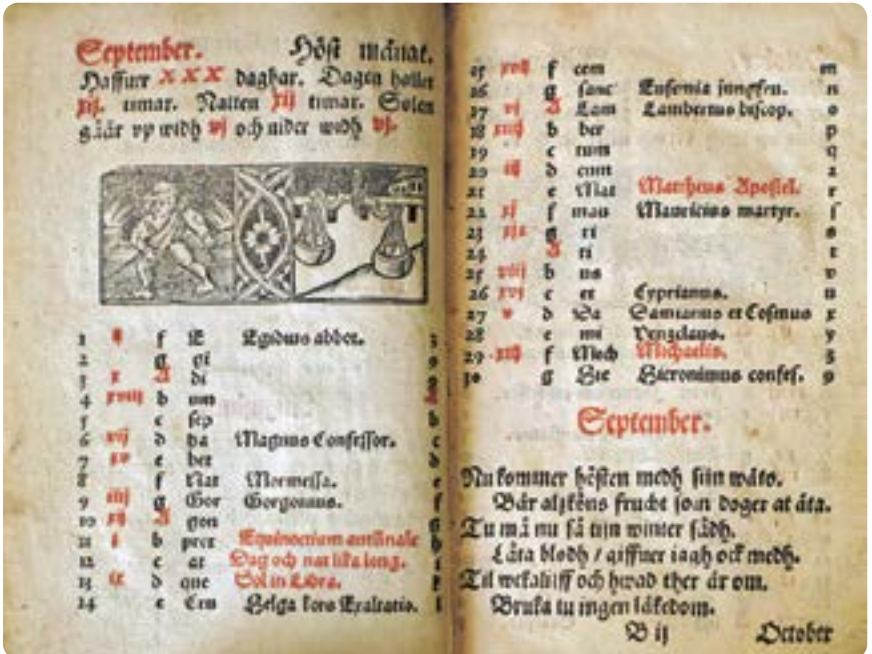 September. Höst månat.
Haffuer xxx daghar. Dagen haller
xij. timar. Natten xij timar. Solen
gåår vp widh vj och nider widh vj.
1 f E Egidius abbot. 3
2 g gi 9
3 x A di
4 xviij b um
5 c sep b
6 vij d ba Magnus Confessor. c
7 xv e bet d
8 f Nat Mormessa. e
9 iiij g Gor Gorgonius. f
10 xij A gon g
11 i b prot Equinoctium autumale h
12 c at Dag och nat lika long.
13 ix d que Sol in Libra. k
14 e Cru Helga kors Exaltatio. l
15 xvij f cem m
16 g sanc Eufemia jungfru. n
17 vj A Lam Lambertus biscop. o
18 xiiij b ber p
19 c tum q
20 iij d cum 2
21 e Mat Mattheus Apostel. r
22 xj f mau Mauricius martyr. ſ
23 xix g ri s
24 A ti t
25 viij b us v
26 xvj c et Cyprianus. u
27 v d Da Damianus et Cosmus x
28 e mi Venzelaus. y
29 xiij f Mich Michaelis. z
30 g Hie Hieronimus confes. 9
September.
Nu kommer hösten medh siin wäto.
Bär alzköns frucht som doger at äta.
Tu må nu så tijn winter sädh.
Låta blodh / giffuer iagh ock medh.
Til wekaliiff och hwad ther är om.
Bruka tu ingen läkedom.
B ij October